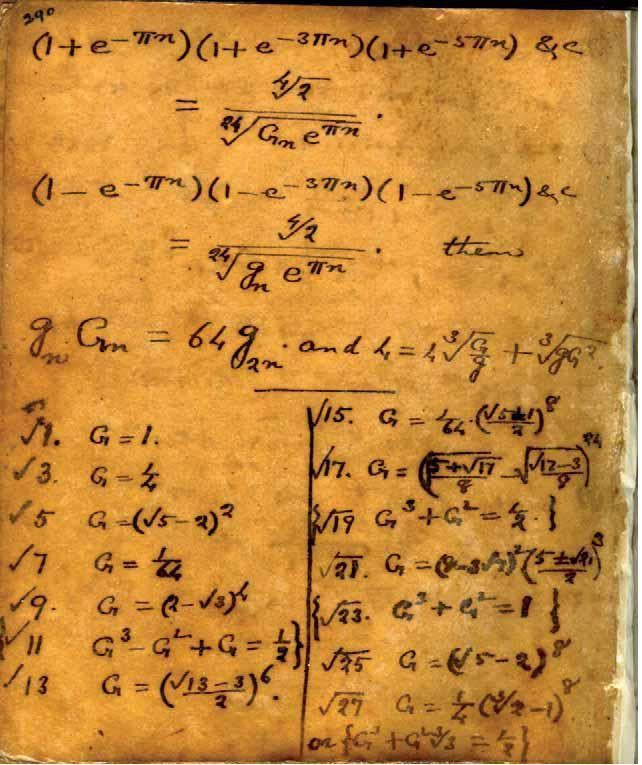 290
(1+e^{-πn})(1+e^{-3πn})(1+e^{-5πn}) &c
= ∜2 / ²⁴√(G_n e^{πn}).
(1-e^{-πn})(1-e^{-3πn})(1-e^{-5πn}) &c
= ∜2 / ²⁴√(g_n e^{πn}). then
g_n G_n = 64 g_{2n}. and
√1. G = 1.
√3. G = 1/4
√5 G = (√5-2)^2
√7 G = 1/64
√9. G = (2-√3)^4
{√11 G^3 - G^2 + G = 1/2}
√13 G = ((√13-3)/2)^6.
√15. G = 1/64 · ((√5±1)/2)^8
√17. G = (√((5+√17)/8) - √((√17-3)/8))^{24}
{√19 G^3 + G^2 = 1/2.}
√21. G = ((5±√21)/2)^3
{√23. G^3 + G^2 = 1}
√25 G = (√5-2)^8
√27 G = 1/4 (∛2-1)^8
or {G^3 + = 1/2}